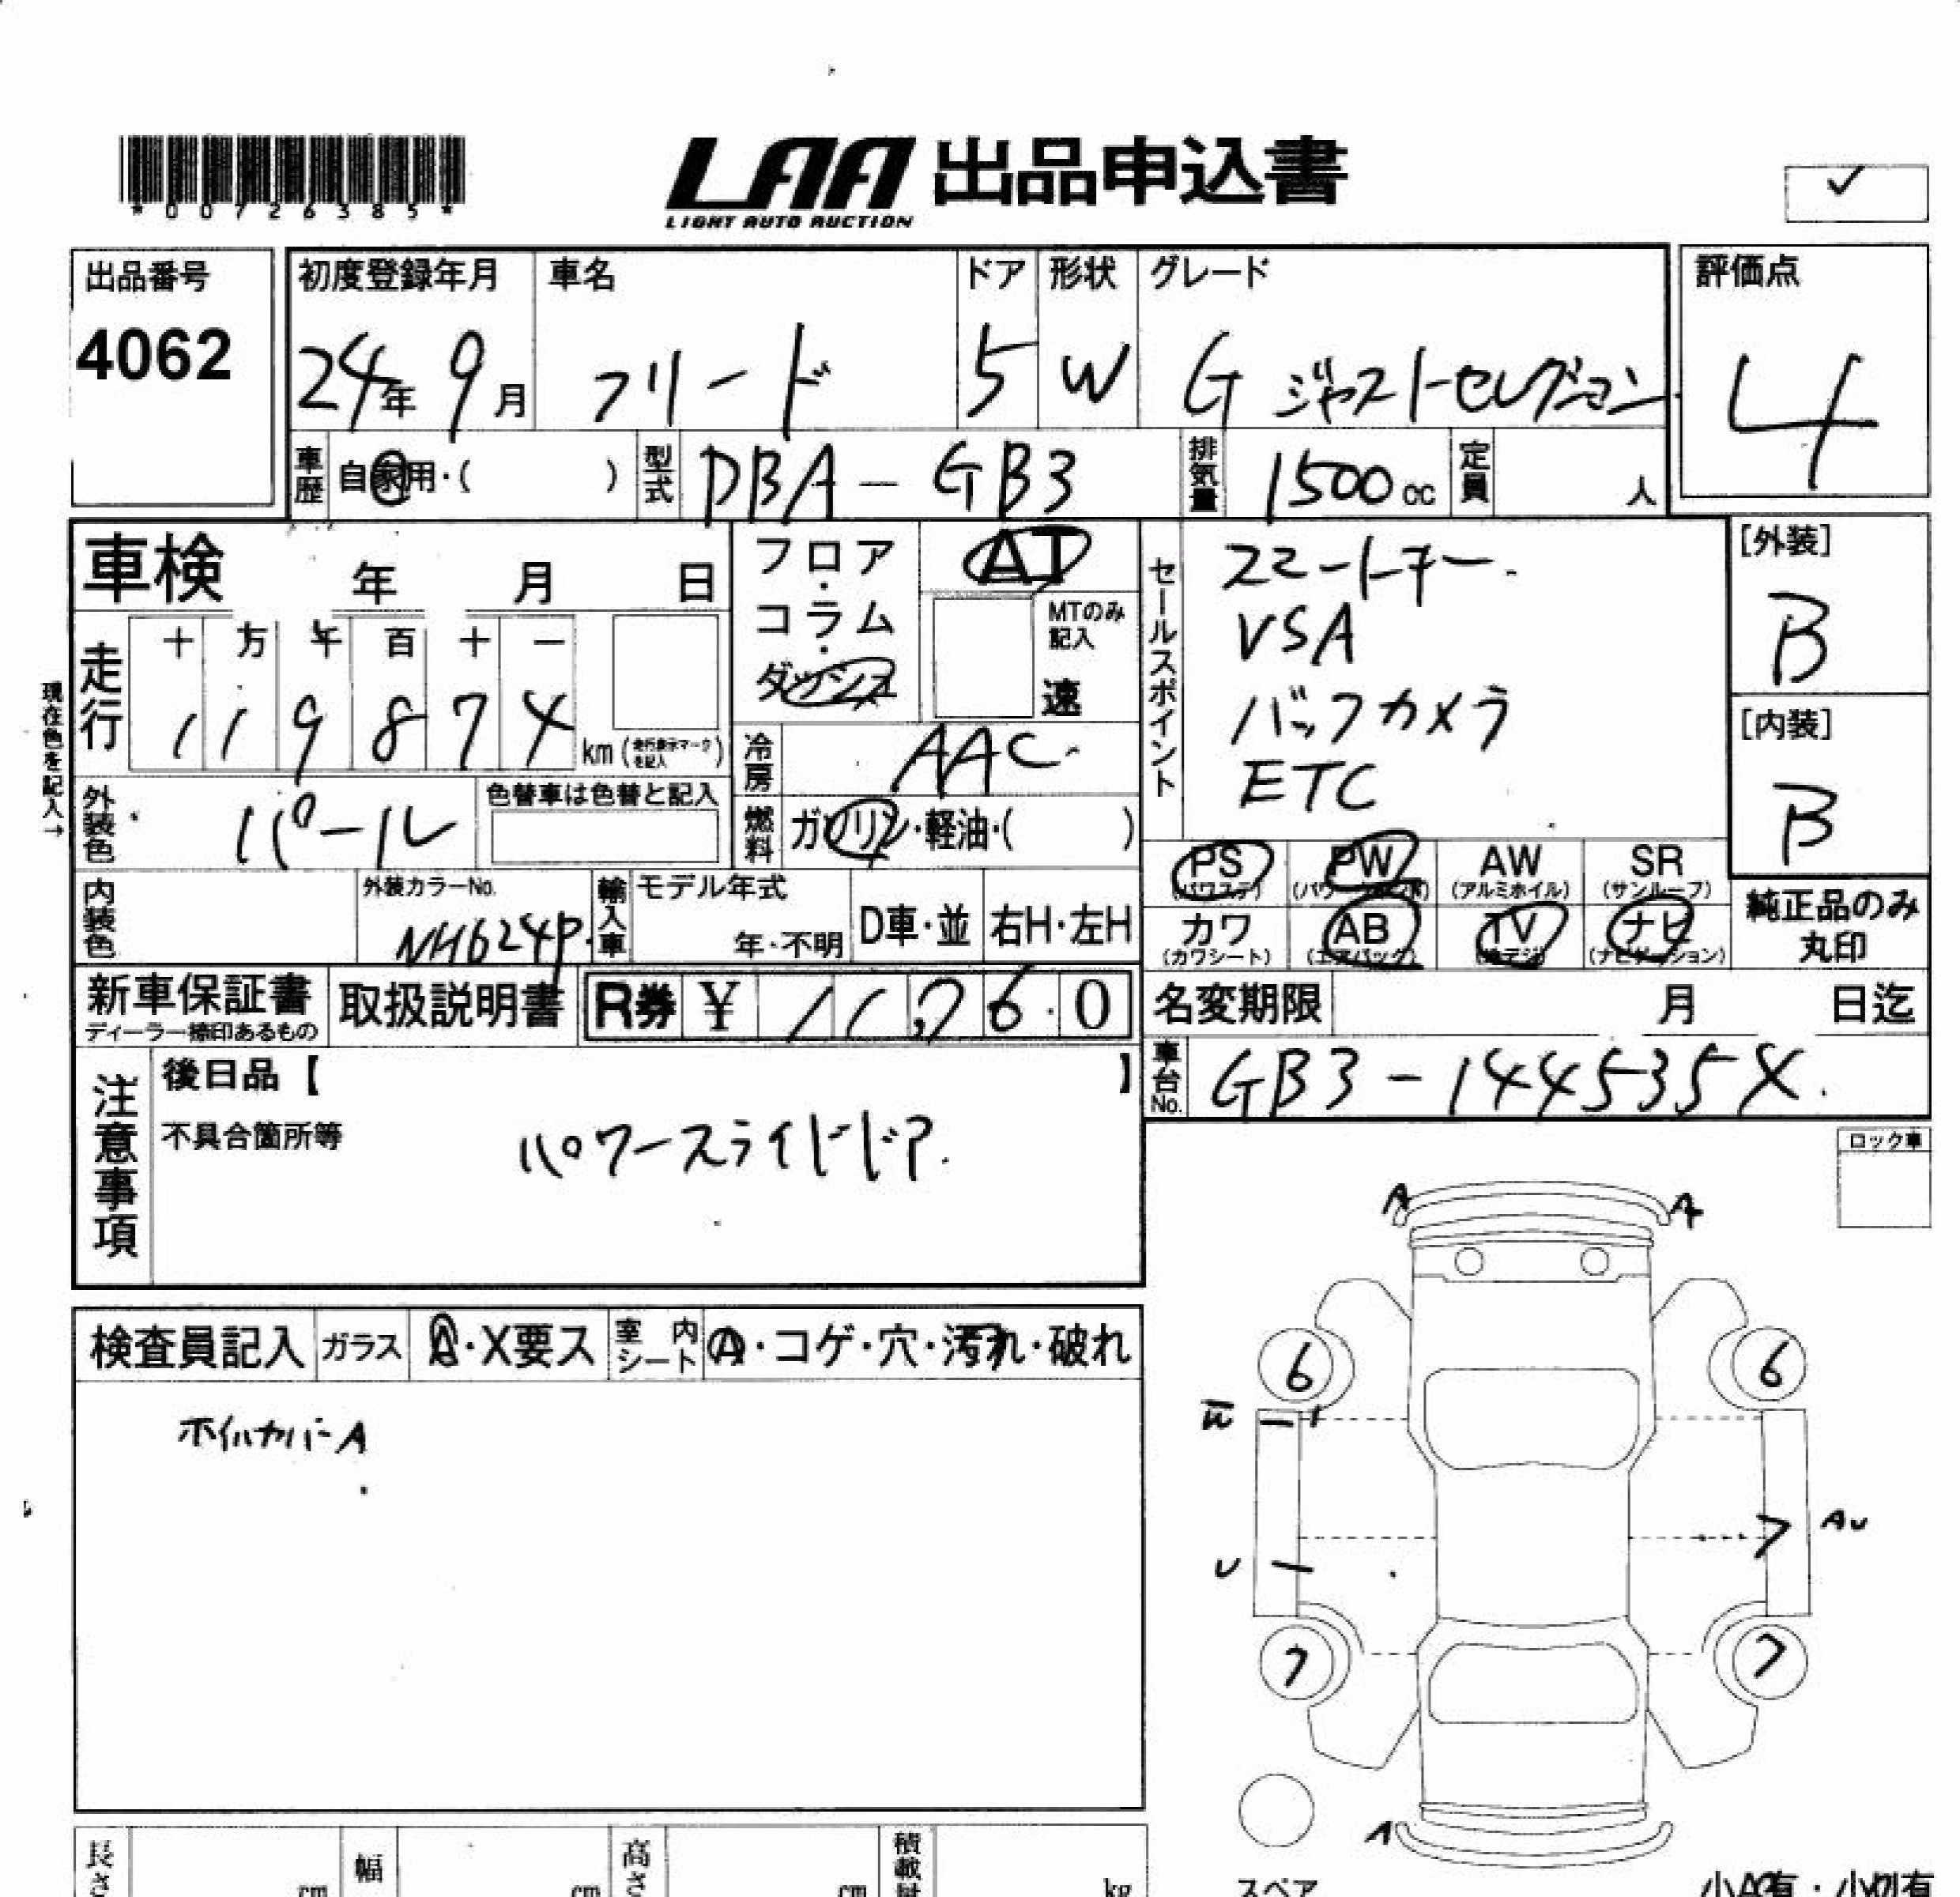 *00726385*
LAA 出品申込書
LIGHT AUTO AUCTION
✓
出品番号
4062
初度登録年月
24年 9月
車名
フリード
ドア
5
形状
W
グレード
G ジャストセレクション
評価点
4
車歴
自家用・( )
型式
DBA-GB3
排気量
1500cc
定員
人
車検 年 月 日
フロア・コラム・ダッシュ
AT
MTのみ記入
速
走行
十 万 千 百 十 一
1 1 9 8 7 4
km(走行表示マークを記入)
現在色を記入→
冷房
AAC
燃料
ガソリン・軽油・( )
セールスポイント
スマートキー
VSA
バックカメラ
ETC
[外装]
B
[内装]
B
外装色
パール
色替車は色替と記入
内装色
外装カラーNo.
NH624P
輸入車
モデル年式
年・不明
D車・並
右H・左H
PS
(パワステ)
PW
AW
(アルミホイル)
SR
(サンルーフ)
カワ
(カワシート)
AB
(エアバッグ)
TV
(地デジ)
ナビ
(ナビゲーション)
純正品のみ
丸印
新車保証書
ディーラー捺印あるもの
取扱説明書
R券 ¥ 11,760
名変期限 月 日迄
車台No.
GB3-144535X
注意事項
後日品【 】
不具合箇所等
パワースライドドア
ロック車
検査員記入
ガラス
A・X要ス
室内シート
A・コゲ・穴・汚れ・破れ
ホイルカバーA
A A
6 6
W
AU
U
7 7
A
スペア
長さ
cm
幅
cm
高さ
cm
積載量
kg